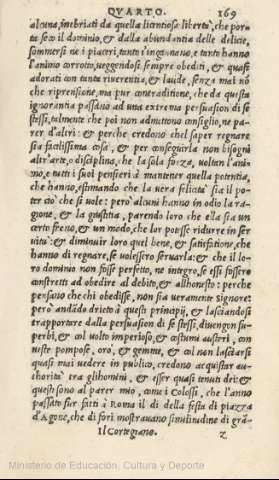 QVARTO. 169
alcuna, inebriati da quella licentiosa libertà, che por-
ta seco il dominio, & dalla abundantia delle delicie,
sommersi ne i piaceri, tanto s'ingannano, e tanto hanno
l'animo corrotto, veggendosi sempre obediti, & quasi
adorati con tanta riuerentia, & laude, senza mai nō
che riprensione, ma pur cōtraditione, che da questa
ignorantia passano ad una extrema persuasion di se
stessi, talmente che poi non admittono consiglio, ne pa-
rer d'altri: & perche credono che'l saper regnare
sia facilissima cosa, & per conseguirla non bisogni
altr'arte, o disciplina, che la sola forza, uoltan l'ani-
mo, e tutti i suoi pensieri à mantener quella potentia,
che hanno, estimando che la uera felicità sia il po-
ter ciò che si uole: però alcuni hanno in odio la ra-
gione, & la giustitia, parendo loro che ella sia un
certo freno, & un modo, che lor potesse ridurre in ser
uitù: & diminuir loro quel bene, & satisfatione, che
hanno di regnare, se uolessero seruarla: & che il lo-
ro dominio non fosse perfetto, ne integro, se essi fossero
constretti ad obedire al debito, & all'honesto: perche
pensano che chi obedisse, non sia ueramente signore:
però andādo drieto à questi principij, & lasciandosi
trapportare dalla persuasion di se stessi, diuengon su-
perbi, & col uolto imperioso, & costumi austeri, con
ueste pompose, oro, & gemme, & col non lasciarsi
quasi mai uedere in publico, credono acquistar au-
thorità tra gl'homini, & esser quasi tenuti dei: &
questi sono al parer mio, come i Colossi, che l'anno
passato fur fatti à Roma il dì della festa di piazza
d'Agone, che di fori mostrauano similitudine di grā-
Il Cortegiano. z
Ministerio de Educación, Cultura y Deporte